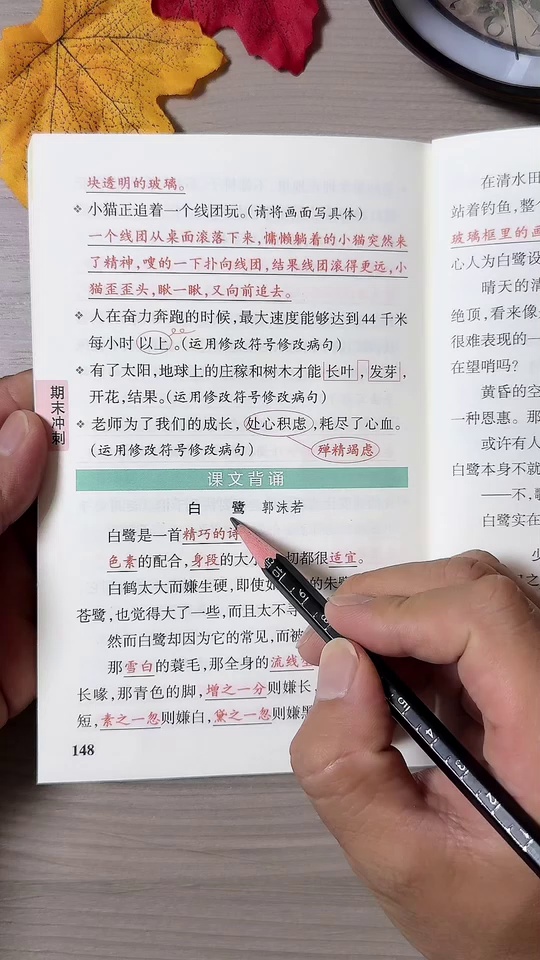 块透明的玻璃。
❖ 小猫正追着一个线团玩。(请将画面写具体)
一个线团从桌面滚落下来,慵懒躺着的小猫突然来
了精神,嗖的一下扑向线团,结果线团滚得更远,小
猫歪歪头,瞅一瞅,又向前追去。
❖ 人在奋力奔跑的时候,最大速度能够达到44千米
每小时以上。(运用修改符号修改病句)
❖ 有了太阳,地球上的庄稼和树木才能长叶,发芽,
开花,结果。(运用修改符号修改病句)
❖ 老师为了我们的成长,处心积虑,耗尽了心血。
(运用修改符号修改病句)
殚精竭虑
期末冲刺
课文背诵
白 鹭 郭沫若
白鹭是一首精巧的诗
色素的配合,身段的大小 切都很适宜。
白鹤太大而嫌生硬,即使如 的朱鹭
苍鹭,也觉得大了一些,而且太不寻
然而白鹭却因为它的常见,而被
那雪白的蓑毛,那全身的流线型
长喙,那青色的脚,增之一分则嫌长
短,素之一忽则嫌白,黛之一忽则嫌黑
148
在清水田
站着钓鱼,整个
玻璃框里的画
心人为白鹭设
晴天的清
绝顶,看来像
很难表现的一
在望哨吗?
黄昏的空
一种恩惠。那
或许有人
白鹭本身不就
——不,
白鹭实在